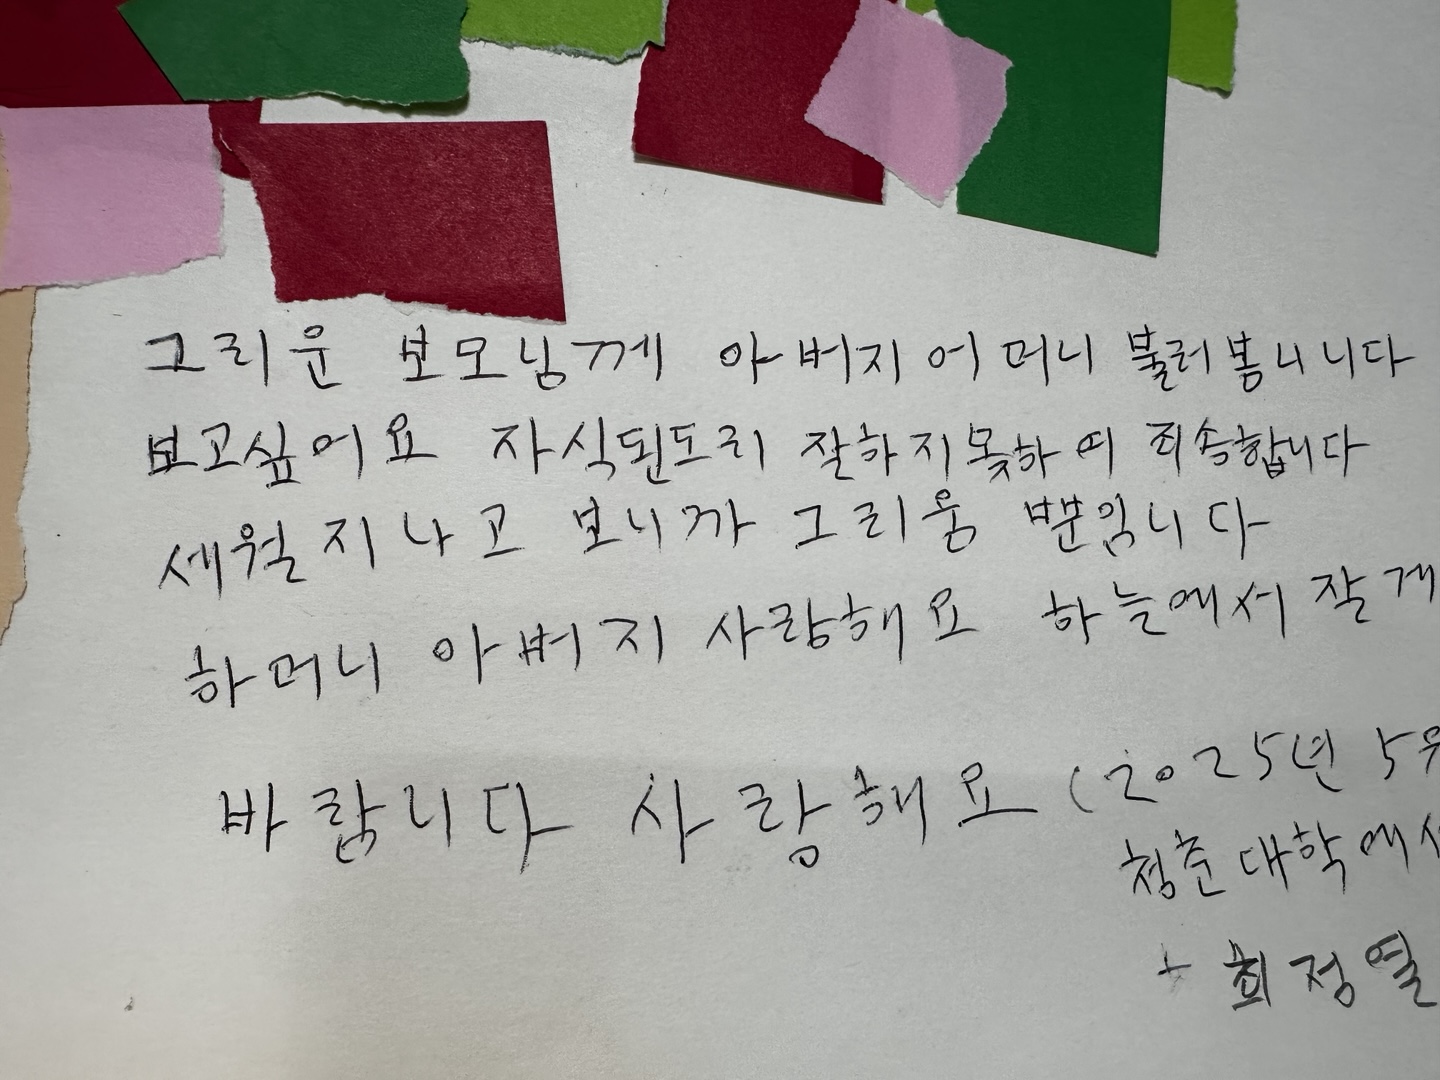 그리운 보모님께 아버지 어머니 불러봅니다
보고싶어요 자식된도리 잘하지못하여 죄송합니다
세월지나고 보니까 그리움 뿐입니다
하머니 아버지 사랑해요 하늘에서 잘 게
바랍니다 사랑해요 (2025년 5월
청춘대학에서
최정열